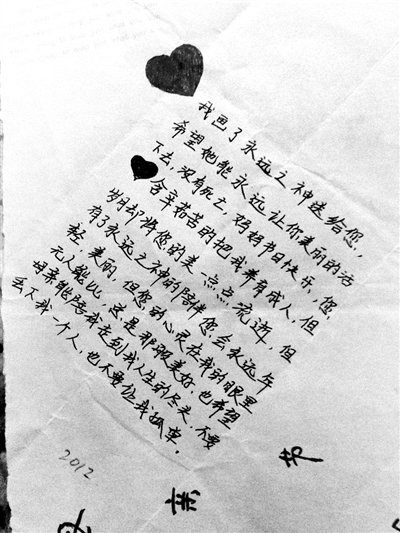 我画了永远之神送给您,
希望她能永远让你美丽的活
下去,没有死亡,妈妈节日快乐,您
含辛茹苦的把我养育成人,但
岁月却将您的美一点点流逝,但
有了永远之神的陪伴您会永远年
轻美丽,但您的心灵在我的眼里
无人能比,这是那那么美好,也希望
母亲能陪我走到我人生的尽头,不要
丢下我一个人,也不要让我孤单.
2012